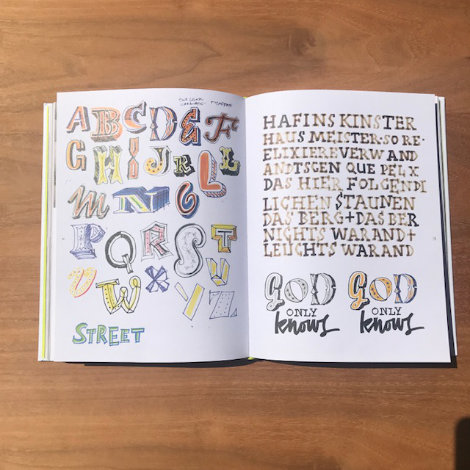 A B C D E F
G H I J K L L
M N O
P Q R S T
U W X V Y Z
STREET
HAFINS KINSTER
HAUS MEISTER·SO RE-
ELIXIEREVERWAND
ANDTSGEN QUE PELX
DAS HIER FOLGENDI
LICHEN STAUNEN
DAS BERG+DAS BER
NICHTS WAR AND+
LEUCHTS WAR AND
GOD
ONLY
knows
GOD
ONLY
knows